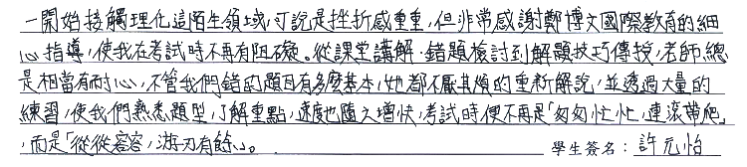 一開始接觸理化這陌生領域，可說是挫折感重重，但非常感謝鄭博文國際教育的細
心指導，使我在考試時不再有阻礙。從課堂講解、錯題檢討到解題技巧傳授，老師總
是相當有耐心，不管我們錯的題目有多麼基本，他都不厭其煩的重新解說，並透過大量的
練習，使我們熟悉題型，了解重點，速度也隨之增快，考試時便不再是「匆匆忙忙，連滾帶爬」
，而是「從從容容，游刃有餘」。
學生簽名：許元怡